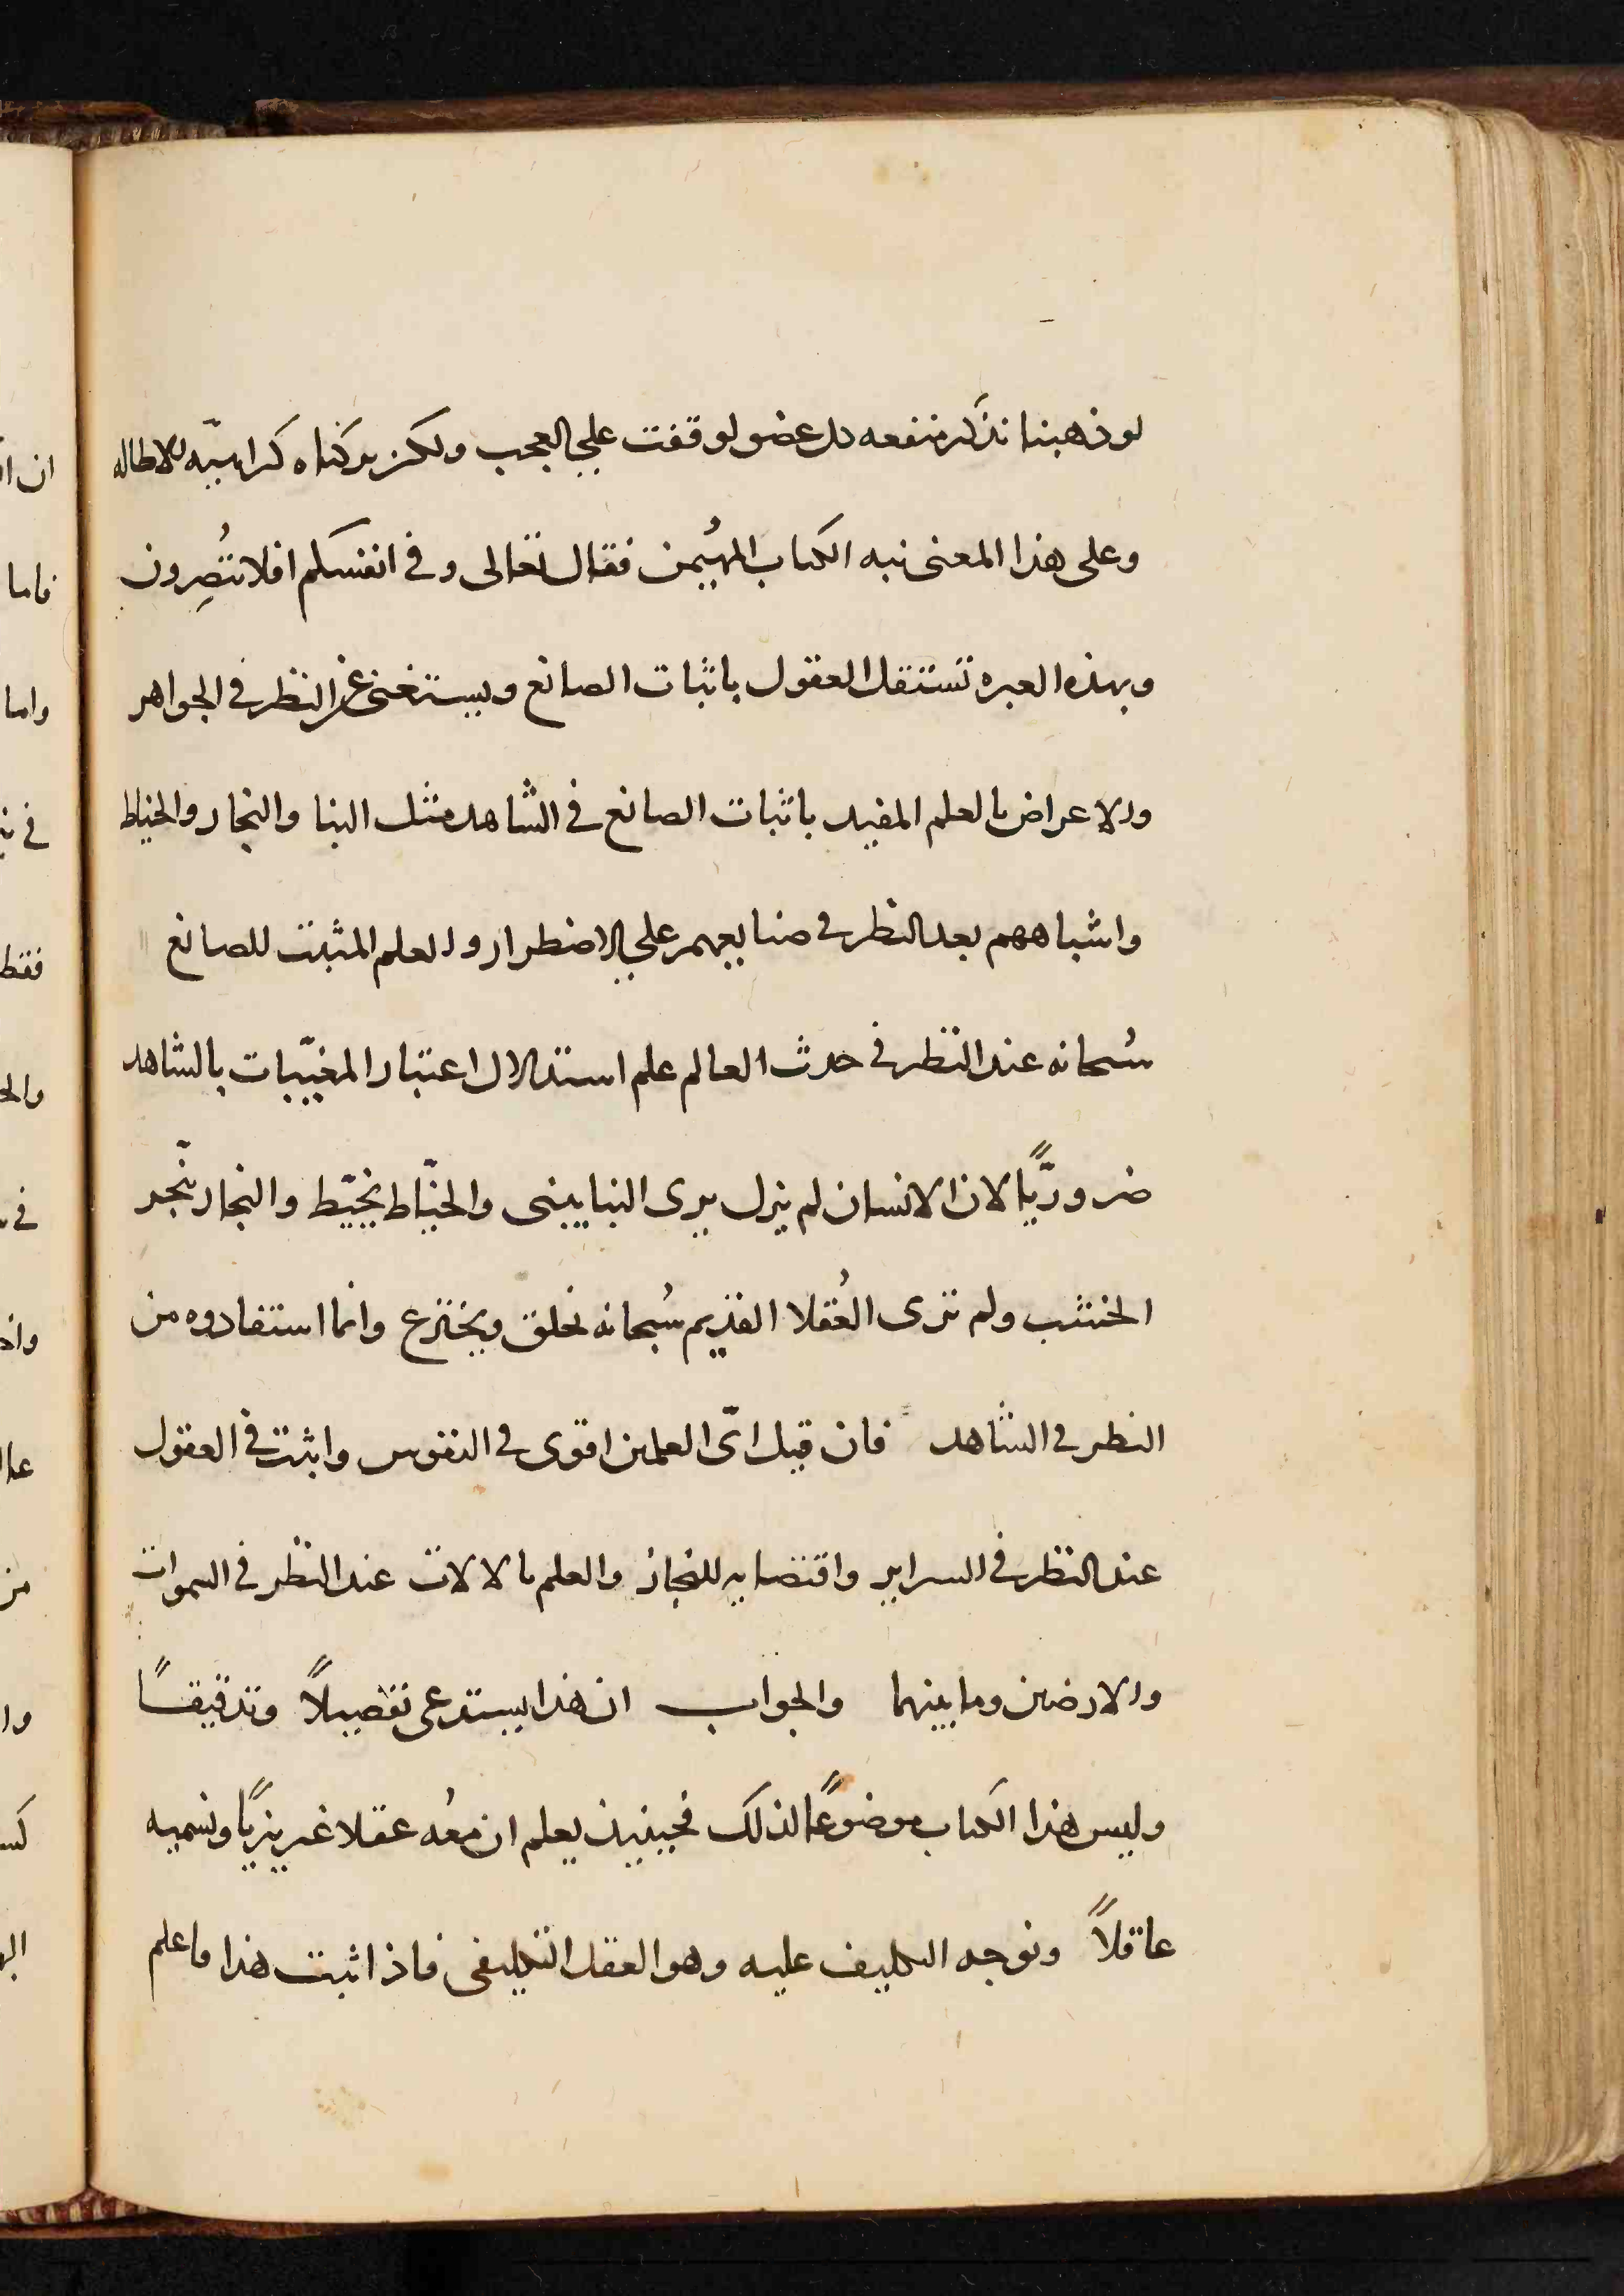 لو ذهبنا نذكر منفعه كل عضو لوقفت على العجب ولكن تركناه كراهيّه للاطاله
وعلى هذا المعنى نبه الكتاب المهيُمن فقال تعالى وفي انفسكم افلا تُبصِرون
وبهذه العبره تستقل العقول باثبات الصانع ويستغنى عن النظر في الجواهر
والاعراض بالعلم المفيد باثبات الصانع في الشاهد مثل البنا والنجار والخياط
واشباههم بعد النظر في صنايعهم على الاضطرار والعلم المثبت للصانع
سُبحانه عند النظر في حدث العالم علم استدلال اعتبار المغيّبات بالشاهد
ضروريًّا لان الانسان لم يزل يرى البنا يبنى والخيّاط يخيّط والنجار ينّجر
الخشب ولم ترى العُقلا القديم سُبحانه يخلق ويخترع وانما استفادوه من
النظر في الشاهد فان قيل ايّ العلمين اقوى في النفوس واثبت في العقول
عند النظر في السراير واقتضايه للنجار والعلم بالالات عند النظر في السموات
والارضين وما بينهما والجواب ان هذا يستدعى تفصيلاً وتدقيقًا
وليس هذا الكتاب موضوعًا لذلك فحينيذ يعلم ان معُه عقلا غريزيًا ونسميه
عاقلاً ونوجه التكليف عليه وهو العقل التكليفى فاذا ثبت هذا فاعلم